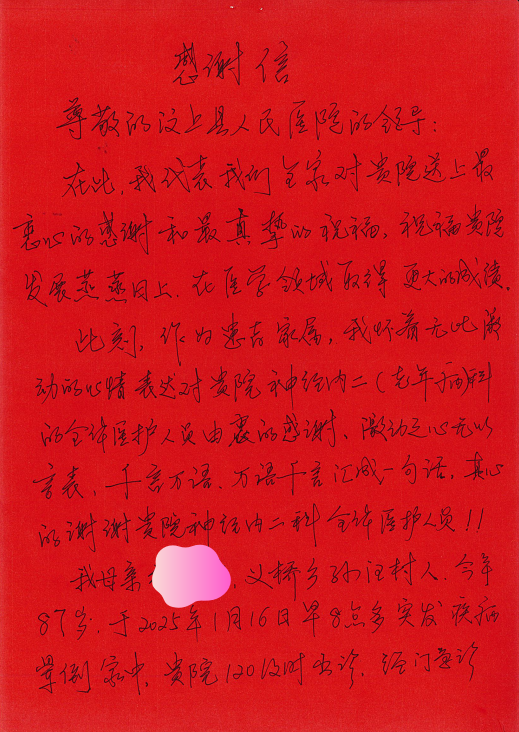 感谢信
尊敬的汶上县人民医院的领导:
在此,我代表我们全家对贵院送上最
衷心的感谢和最真挚的祝福,祝福贵院
发展蒸蒸日上,在医学领域取得更大的成绩。
此刻,作为患者家属,我怀着无比激
动的心情表达对贵院神经内二(老年病)科
的全体医护人员由衷的感谢、激动之心无以
言表,千言万语、万语千言汇成一句话,真心
的谢谢贵院神经内二科全体医护人员!!
我母亲 ,义桥乡孙汪村人,今年
87岁,于2025年1月16日早8点多突发疾病
晕倒家中,贵院120及时出诊,经门急诊